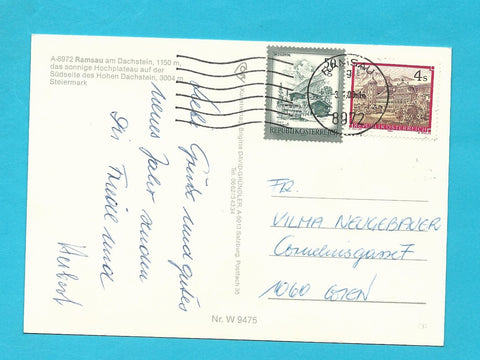 A-8972 Ramsau am Dachstein, 1150 m,
das sonnige Hochplateau auf der
Südseite des Hohen Dachstein, 3004 m
Steiermark
Liebe Grüße und gutes
neues Jahr senden
Dir Friedl und
Herbert
Brigitte DAVID-GRÜNDLER, A-5013 Salzburg, Postfach 35
Nr. W 9475
RAMSAU
8972
50
REPUBLIK ÖSTERREICH
4 S
REPUBLIK ÖSTERREICH
FR.
VILMA NEUGEBAUER
Corneliusgasse 7
1060 WIEN